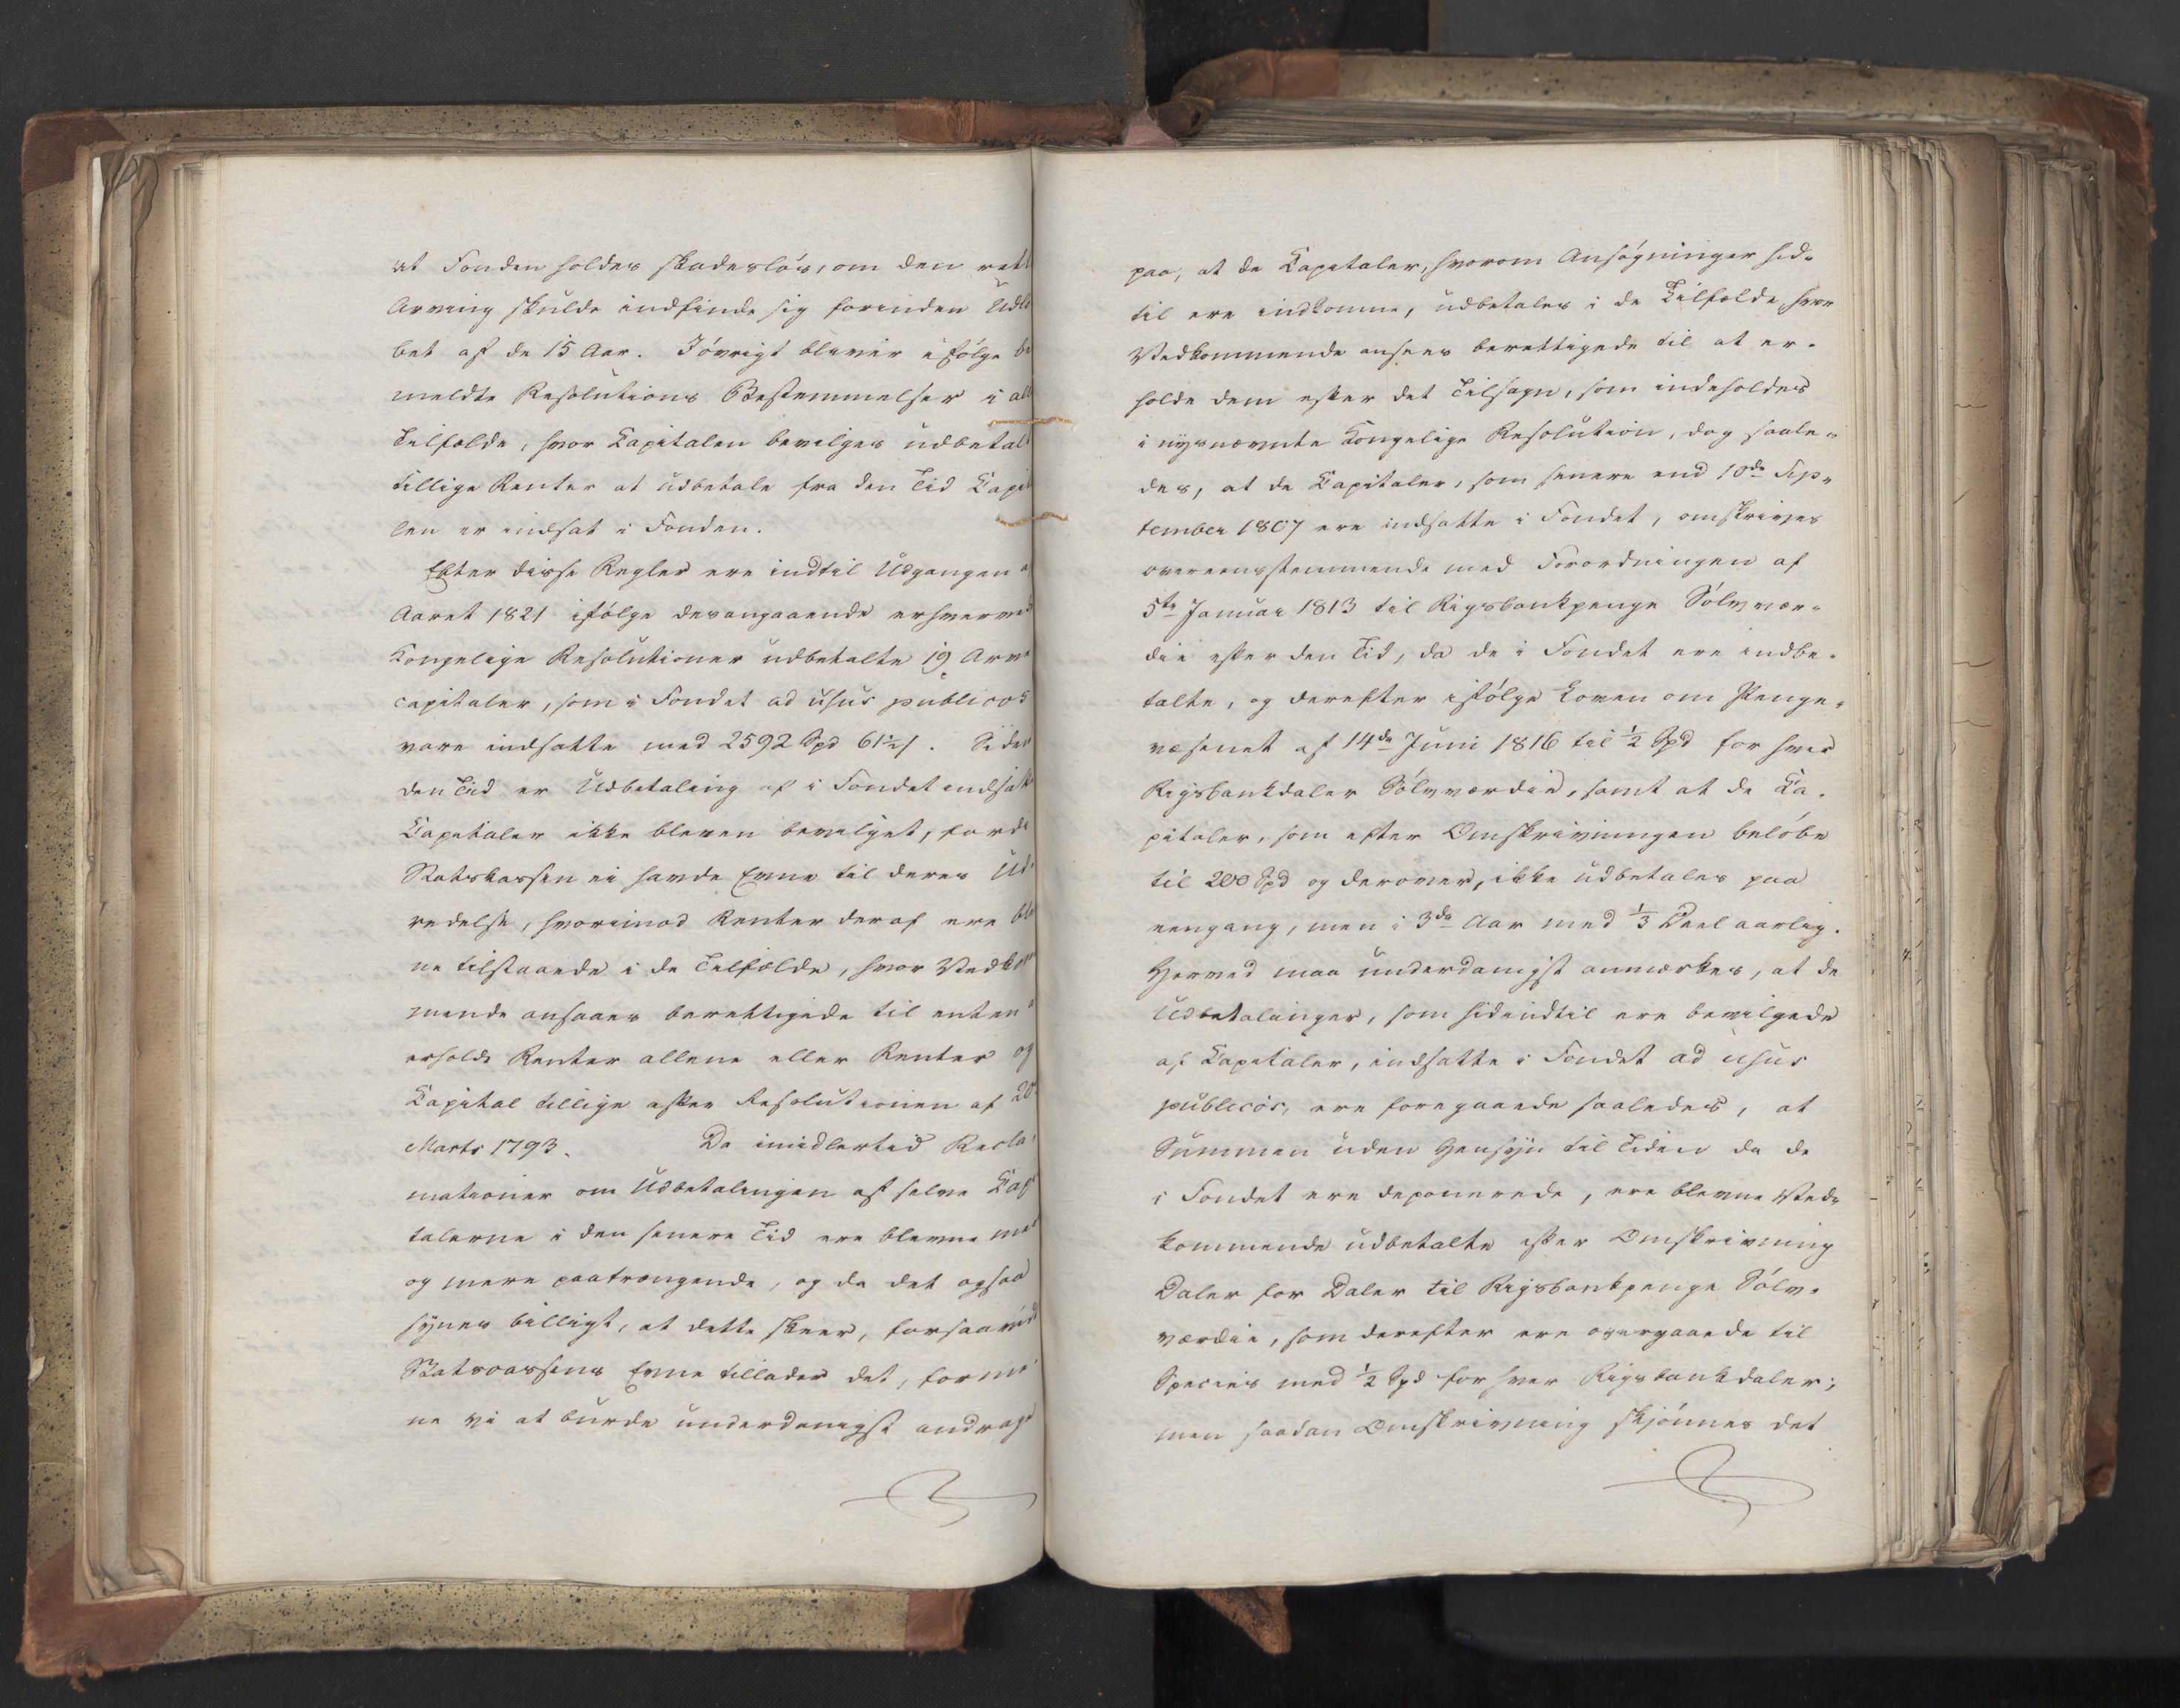 at Fonden holdes skadesløs, om den rett
Arving skulde indfinde sig forinden Udlø
bet af de 15 Aar. Iøvrigt bliver ifølge be
meldte Resolutions Bestemmelser i all
Tilfælde, hvor Capitalen bevilges udbetalt
tillige Renter at udbetale fra den Tid Capit
len er indsat i Fonden.
Efter disse Regler ere indtil Udgangen a
Aaret 1821 ifølge desangaaende erhverved
Kongelige Resolutioner udbetalte 19 Arve
capitaler, som i Fondet ad usus publicos
vare indsatte med 2592 Spd 61½ s. Siden
den Tid er Udbetaling af i Fondet indsatt
Capitaler ikke bleven bevilget, fordi
Statskassen ei havde Evne til deres Ud-
redelse, hvorimod Renter deraf ere ble
ne tilstaaede i de Tilfælde, hvor Vedkom
mende ansaaes berettigede til enten a
erholde Renter allene eller Renter og
Capital tillige efter Resolutionen af 20
Marts 1793. Da imidlertid Recla-
mationer om Udbetalingen af selve Capi
talerne i den senere Tid ere blevne mer
og mere paatrængende, og da det ogsaa
synes billigt, at dette skeer, forsaavidt
Statscassens Evne tillader det, formee
ne vi at burde underdanigst andrage
paa, at de Capitaler, hvorom Ansøgninger hid-
til ere indkomne, udbetales i de Tilfælde, hvor
Vedkommende ansees berettigede til at er-
holde dem efter det Tilsagn, som indeholdes
i nysnævnte Kongelige Resolution, dog saale-
des, at de Capitaler, som senere end 10de Sep-
tember 1807 ere indsatte i Fondet, omskrives
overeensstemmende med Forordningen af
5te Januar 1813 til Rigsbankpenge Sølvvær-
die efter den Tid, da de i Fondet ere indbe-
talte, og derefter ifølge Loven om Penge-
væsenet af 14de Juni 1816 til ½ Spd for hver
Rigsbankdaler Sølvværdie, samt at de Ca-
pitaler, som efter Omskrivningen beløbe
til 200 Spd og derover, ikke udbetales paa
eengang, men i 3de Aar med ⅓ Deel aarlig.
Herved maa underdanigst anmærkes, at de
Udbetalinger, som hidindtil ere bevilgede
af Capitaler, indsatte i Fondet ad usus
publicos, ere foregaaede saaledes, at
Summen uden Hensyn til Tiden da de
i Fondet ere deponerede, ere blevne Ved-
kommende udbetalte efter Omskrivning
Daler for Daler til Rigsbankpenge Sølv-
værdie, som derefter ere overgaaede til
Species med ½ Spd for hver Rigsbankdaler;
men saadan Omskrivning skjønnes det